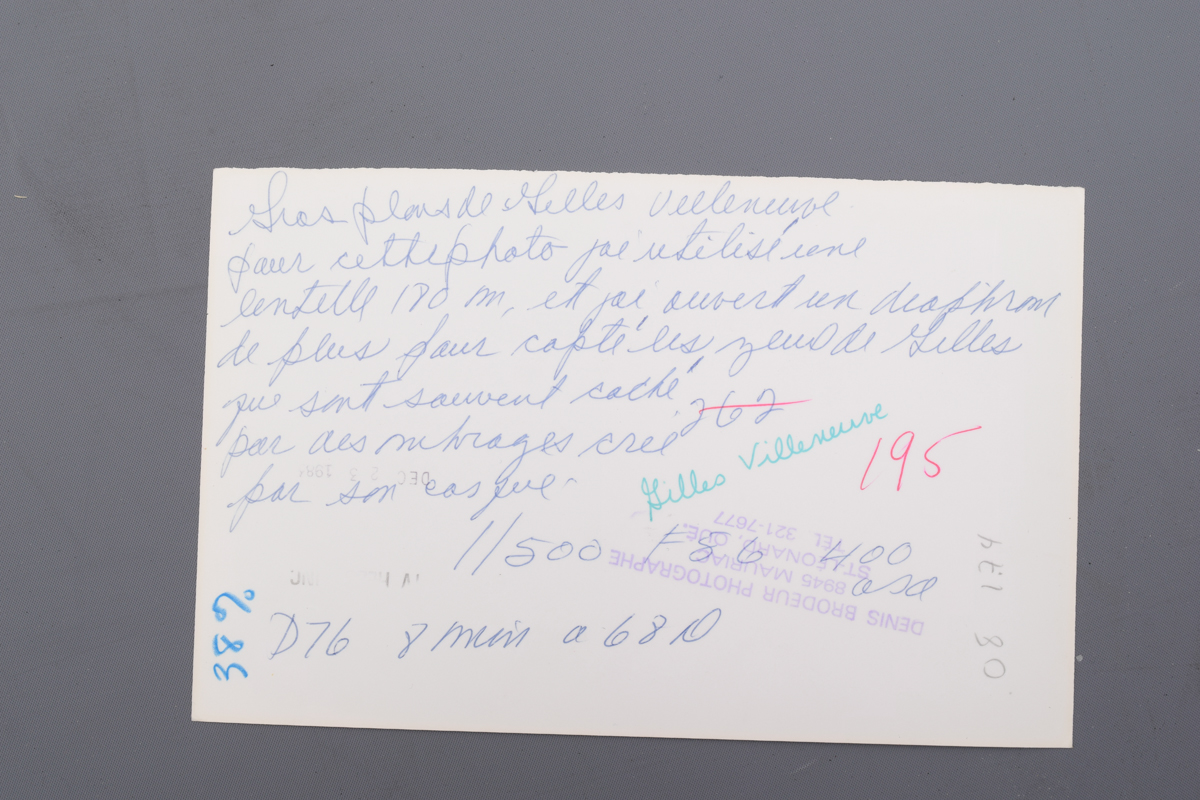 Gros plans de Gilles Villeneuve
pour cette photo jai utilisé une
lentelle 180 m, et jai ouvert un diaphrom
de plus pour capté les yeux de Gilles
que sont souvent caché
par des ombrages creé
par son casque
262
Gilles Villeneuve
195
DEC 23 198
1/500 F5 6 400
asa
DENIS BRODEUR PHOTOGRAPHE
8945 MAURIAC
ST-LÉONARD, QUE.
TEL. 321-7677
D76 8 min a 68 D
38%
08 174